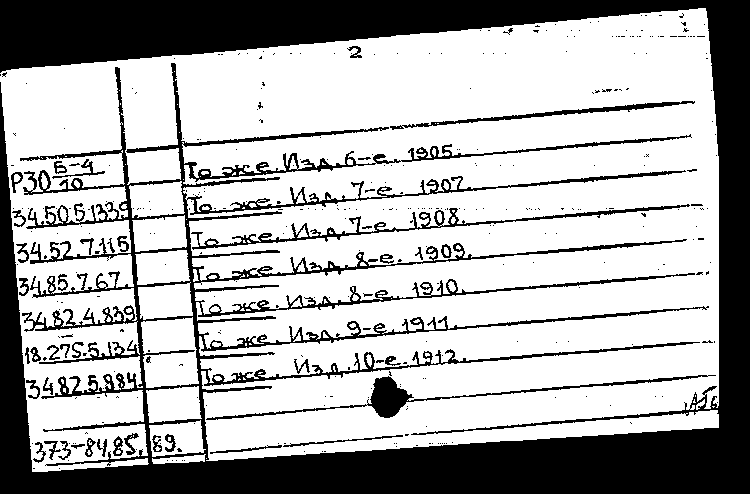 2
Р30 Б-4/10 То же. Изд. 6-е. 1905.
34.50.5.1339. То же. Изд. 7-е. 1907.
34.52.7.115 То же. Изд. 7-е. 1908.
34.85.7.67. То же. Изд. 8-е. 1909.
34.82.4.839. То же. Изд. 8-е. 1910.
18.275.5.134 То же. Изд. 9-е. 1911.
34.82.5.884. То же. Изд. 10-е. 1912.
373-84,85,89.